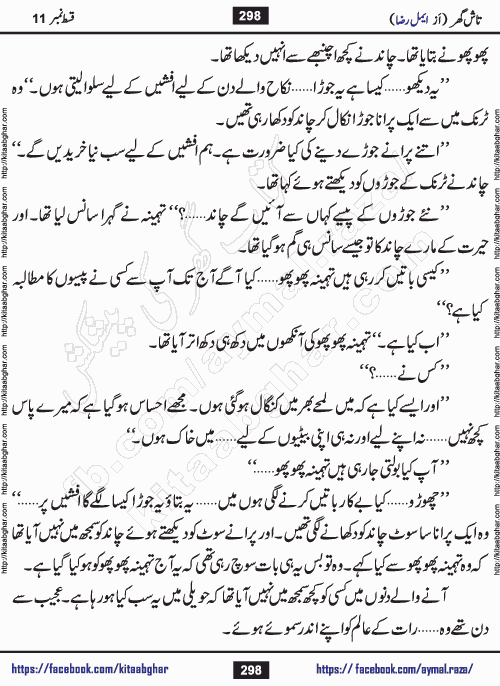 تاش گھر (از ایمل رضا)
298
قسط نمبر 11
پھوپھو نے بتایا تھا۔ چاند نے کچھ اچنبھے سے انہیں دیکھا تھا۔
’’یہ دیکھو......کیسا ہے یہ جوڑا......نکاح والے دن کے لیے افشیں کے لیے سلوا لیتی ہوں۔‘‘ وہ
ٹرنک میں سے ایک پرانا جوڑا نکال کر چاند کو دکھا رہی تھیں۔
’’اتنے پرانے جوڑے دینے کی کیا ضرورت ہے۔ ہم افشیں کے لیے سب نیا خریدیں گے۔‘‘
چاند نے ٹرنک کے جوڑوں کو دیکھتے ہوئے کہا تھا۔
’’نئے جوڑوں کے پیسے کہاں سے آئیں گے چاند......؟‘‘ تہمینہ نے گہرا سانس لیا تھا۔ اور
حیرت کے مارے چاند کا تو جیسے سانس ہی گم ہو گیا تھا۔
’’کیسی باتیں کر رہی ہیں تہمینہ پھوپھو......کیا آگے آج تک آپ سے کسی نے پیسوں کا مطالبہ
کیا ہے؟‘‘
’’اب کیا ہے۔‘‘ تہمینہ پھوپھو کی آنکھوں میں دکھ ہی دکھ اتر آیا تھا۔
’’کس نے......؟‘‘
’’اور ایسے کیا ہے کہ میں لمحے بھر میں کنگال ہو گئی ہوں۔ مجھے احساس ہو گیا ہے کہ میرے پاس
کچھ نہیں......نہ اپنے لیے اور نہ ہی اپنی بیٹیوں کے لیے......میں خاک ہوں۔‘‘
’’آپ کیا بولتی جا رہی ہیں تہمینہ پھوپھو......‘‘
’’چھوڑو......کیا بے کار باتیں کرنے لگی ہوں میں......یہ بتاؤ یہ جوڑا کیسا لگے گا افشیں پر......‘‘
وہ ایک پرانا سا سوٹ چاند کو دکھانے لگی تھیں۔ اور پرانے سوٹ کو دیکھتے ہوئے چاند کو سمجھ میں نہیں آیا تھا
کہ وہ تہمینہ پھوپھو سے کیا کہے۔ وہ تو بس یہ ہی بات سوچ رہی تھی کہ یہ آج تہمینہ پھوپھو کو ہو کیا گیا ہے۔
آنے والے دنوں میں کسی کو کچھ سمجھ میں نہیں آیا تھا کہ حویلی میں یہ سب کیا ہو رہا ہے۔ عجیب سے
دن تھے وہ......رات کے عالم کو اپنے اندر سموئے ہوئے۔
https://facebook.com/kitaabghar
298
https://facebook.com/aymal.raza/
http://kitaabghar.com
fb.com/aymal.raza
kitaabghar.com